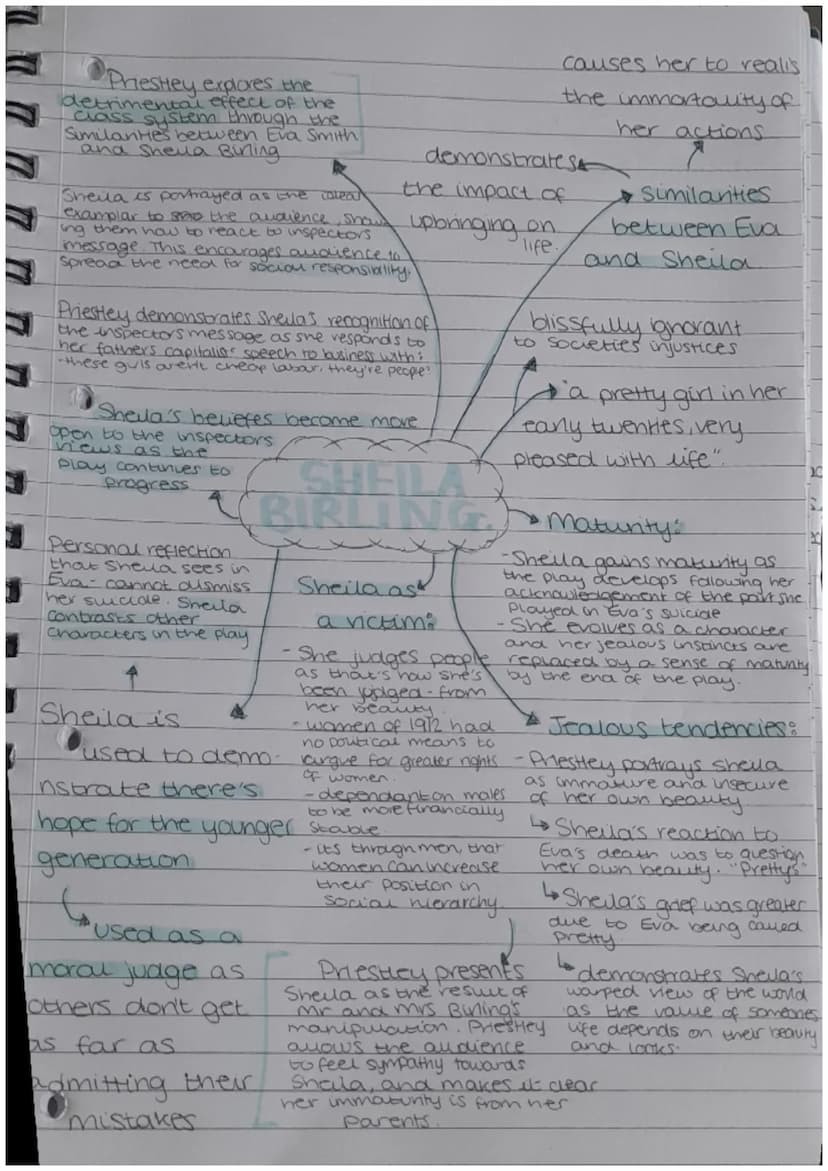 Priestley explores the
detrimental effect of the
class system through the
similarities between Eva Smith
and Sheila Birling
Sheila is portrayed as the
examplar to the audience, show
ing them how to react to inspectors
message. This encourages audience to
spread the need for social responsibility.
Priestley demonstrates Sheila's recognition of
the inspectors message as she responds to
her fathers capitalist speech to business with:
"these girls arent cheap labar, they're people"
Sheila's beliefes become more
open to the inspectors
views as the
play continues to
progress
causes her to realis
the immortality of
her actions
demonstrates
the impact of
upbringing on
life.
similarities
between Eva
and Sheila
blissfully ignorant
to societies injustices
"a pretty girl in her
early twenties, very
pleased with life".
SHEILA
BIRLING.
Maturity:
- Sheila gains maturity as
the play develops following her
acknowledgement of the part she
played in Eva's suicide
- She evolves as a character
and her jealous instincts are
replaced by a sense of maturity
by the end of the play.
Personal reflection
that Sheila sees in
Eva - cannot dismiss
her suicide. Sheila
contrasts other
characters in the play
Sheila is
used to demo-
nstrate there's
hope for the younger
generation
used as a
moral judge as
others don't get
as far as
admitting their
mistakes
Sheila as
a victim:
- She judges people
as that's how she's
been judged - from
her beauty
- women of 1912 had
no political means to
argue for greater rights
of women.
- dependant on males
to be more financially
stable
- its through men, that
women can increase
their position in
social hierarchy.
Priestley presents
Sheila as the result of
Mr and Mrs Birling's
manipulation. Priestley
allows the audience
to feel sympathy towards
Sheila, and makes it clear
her immaturity is from her
parents.
Jealous tendencies:
- Priestley portrays Sheila
as immature and insecure
of her own beauty
↳ Sheila's reaction to
Eva's death was to question
her own beauty. "Pretty?"
↳ Sheila's grief was greater
due to Eva being called
pretty
↳ demonstrates Sheila's
warped view of the world
as the value of someones
life depends on their beauty
and looks.